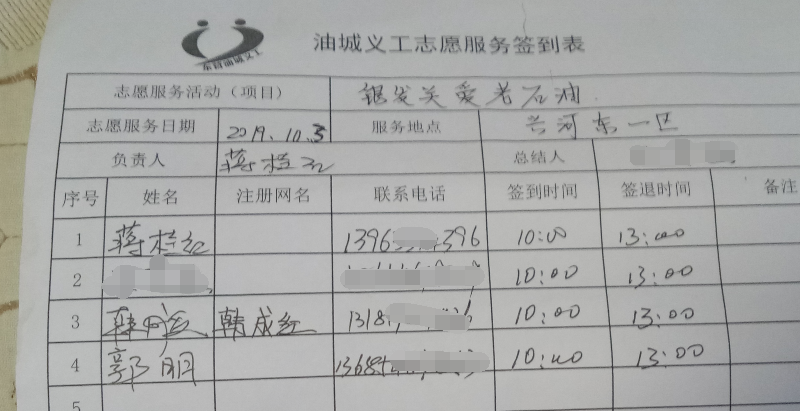 东营油城义工
油城义工志愿服务签到表
志愿服务活动（项目） 银发关爱老石油
志愿服务日期 2019.10.3 服务地点 兴河东一区
负责人 蒋桂红 总结人
序号 姓名 注册网名 联系电话 签到时间 签退时间 备注
1 蒋桂红 1396 396 10:00 13:00
2 10:00 13:00
3 韩成红 1318 10:00 13:00
4 郭丽 1368 10:00 13:00
5